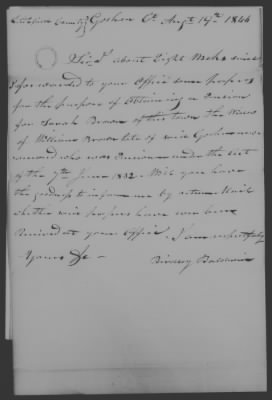 Litchfield County Goshen Ct. Augt 14th. 1844
Sir. I about Eight Weeks since
forwarded to your Office some papers
for the purpose of obtaining a Pension
for Sarah Brown of this town the Widow
of William Brown late of said Goshen
who was Pensioned under the Act
of the 7th June 1832. Will you have
the goodness to inform me by return Mail
whether said papers have ever been
Received at your Office. I am respectfully
Yours &c —
Baldwin